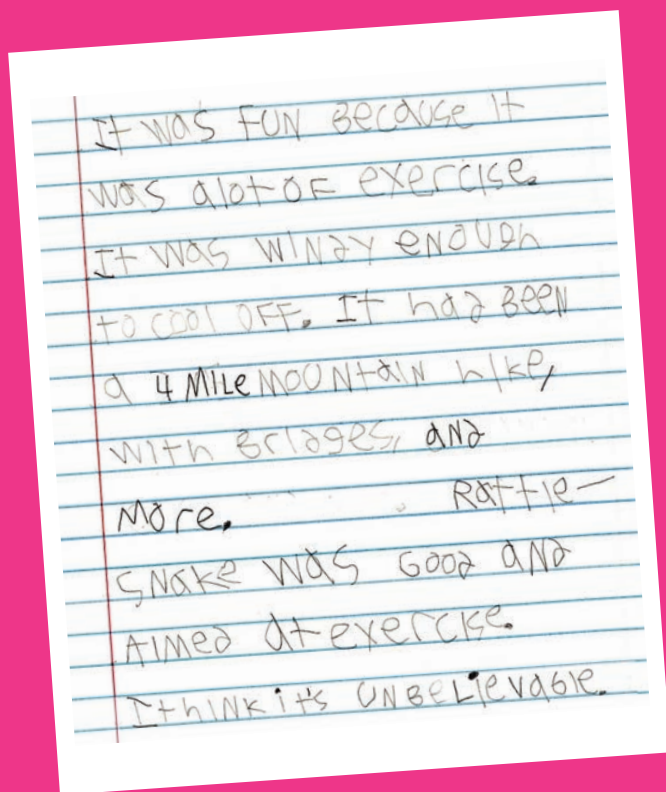 It was FUN Because it
was alot oF exercise.
It was windy enough
to cool OFF. It had Been
a 4 MiLe MOUNtaiN hike,
with Bridges, aNd
More. Rattle-
SNake was Good aNd
AiMed at exercise.
I thiNk it's UNBeLievable.